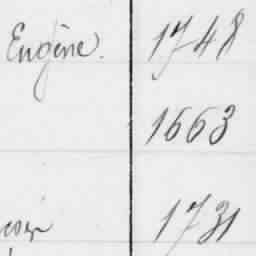 Eugène. 1748
1663
1731